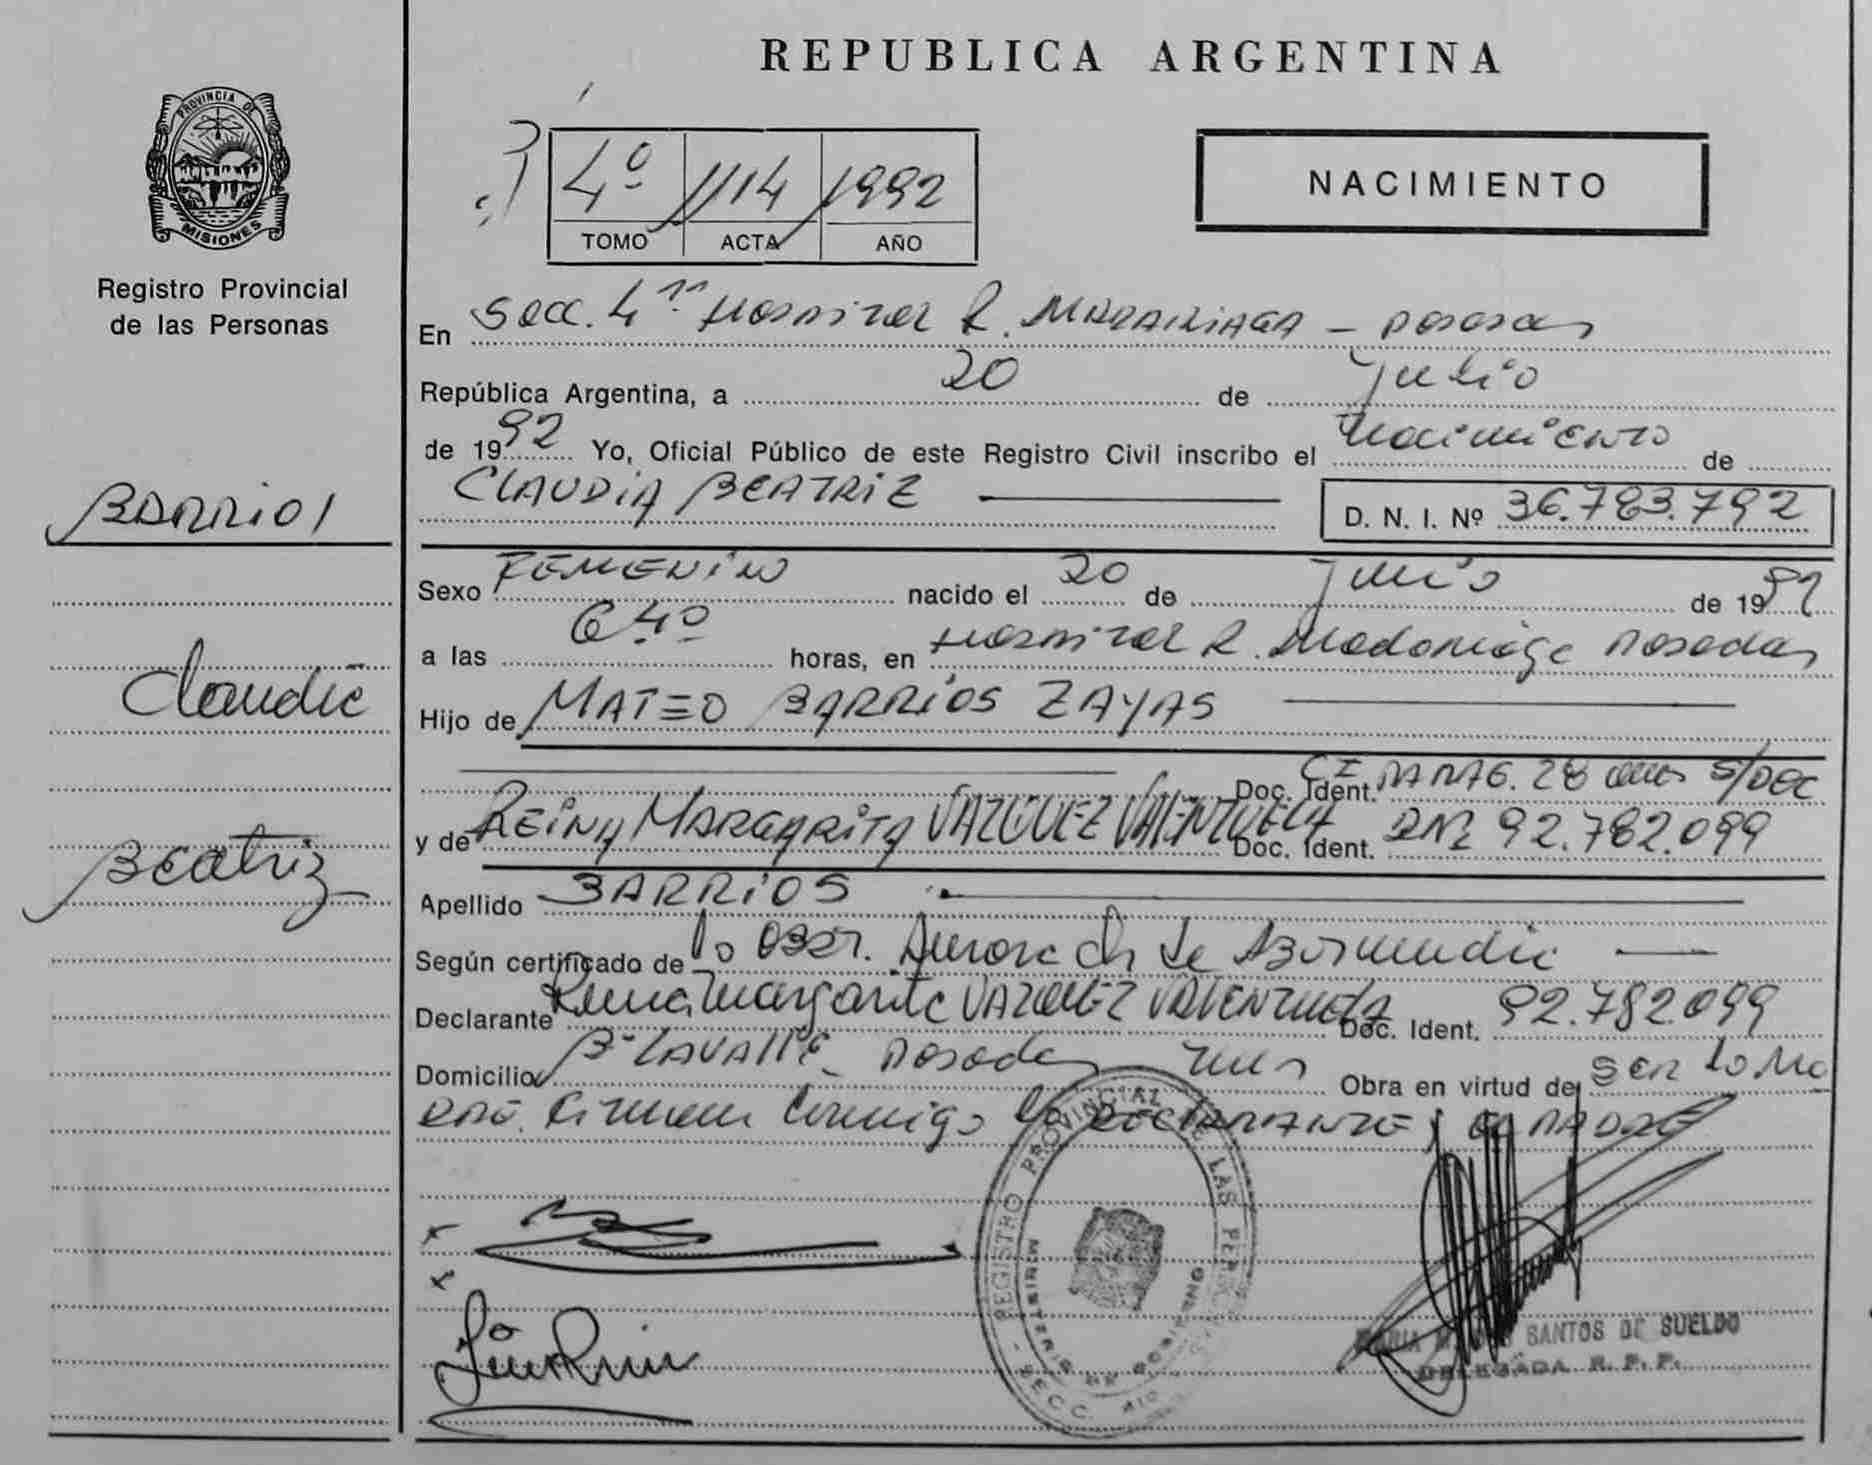 REPUBLICA ARGENTINA
PROVINCIA DE
MISIONES
Registro Provincial
de las Personas
4º 1114 1992
TOMO ACTA AÑO
NACIMIENTO
En Secc. 4ta Hospital R. MADARIAGA - Posadas
República Argentina, a 20 de Julio
de 1992 Yo, Oficial Público de este Registro Civil inscribo el Nacimiento de
CLAUDIA BEATRIZ D. N. I. Nº 36.783.792
BARRIOS
Claudia
Beatriz
Sexo FEMENINO nacido el 20 de de 19
a las 640 horas, en Hospital R. Madariaga Posadas
Hijo de MATEO BARRIOS ZAYAS
Doc. Ident. 28 años
y de REINA MARGARITA VAZQUEZ VALENZUELA Doc. Ident. DNI 92.782.099
Apellido BARRIOS
Según certificado de la Obst. Aurora de
Declarante Reina Margarita VAZQUEZ VALENZUELA Doc. Ident. 92.782.099
Domicilio Bº LAVALLE - Posadas Mnes Obra en virtud de Ser la Ma
dre. Firman Conmigo la DECLARANTE y el PADRE
REGISTRO PROVINCIAL DE LAS PERSONAS
MINISTERIO DE GOBIERNO
SECC.
MARIA SANTOS DE SUELDO
DELEGADA R. P. P.